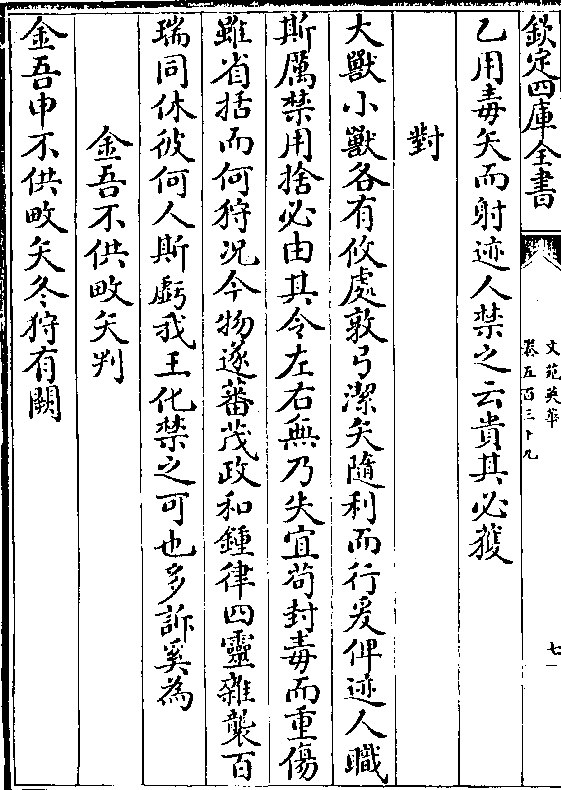 欽定四庫全書
文苑英華
卷五百三十九
七
乙用毒矢而射迹人禁之云貴其必獲
對
大獸小獸各有攸處敦弓潔矢隨利而行爰俾迹人職
斯厲禁用捨必由其令左右無乃失宜茍封毒而重傷
雖省括而何狩况今物遂蕃茂政和鍾律四靈雜襲百
瑞同休彼何人斯虧我王化禁之可也多訴奚為
金吾不供畋矢判
金吾申不供畋矢冬狩有闕